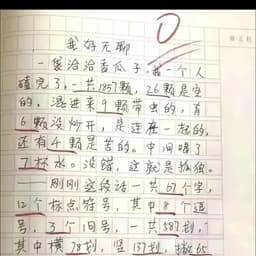 0
我好无聊
一袋洽洽香瓜子,我一个人
嗑完了,一共1857颗,26颗是空
的,混进来9颗带虫的,有
6颗没炒开,是连在一起的,
还有4颗是苦的。中间喝了
7杯水。没错,这就是孤独。
——刚刚这段话一共67个字,
12个标点符号,其中8个逗
号,3个句号,一共587划,
其中横78划,竖137划,撇65